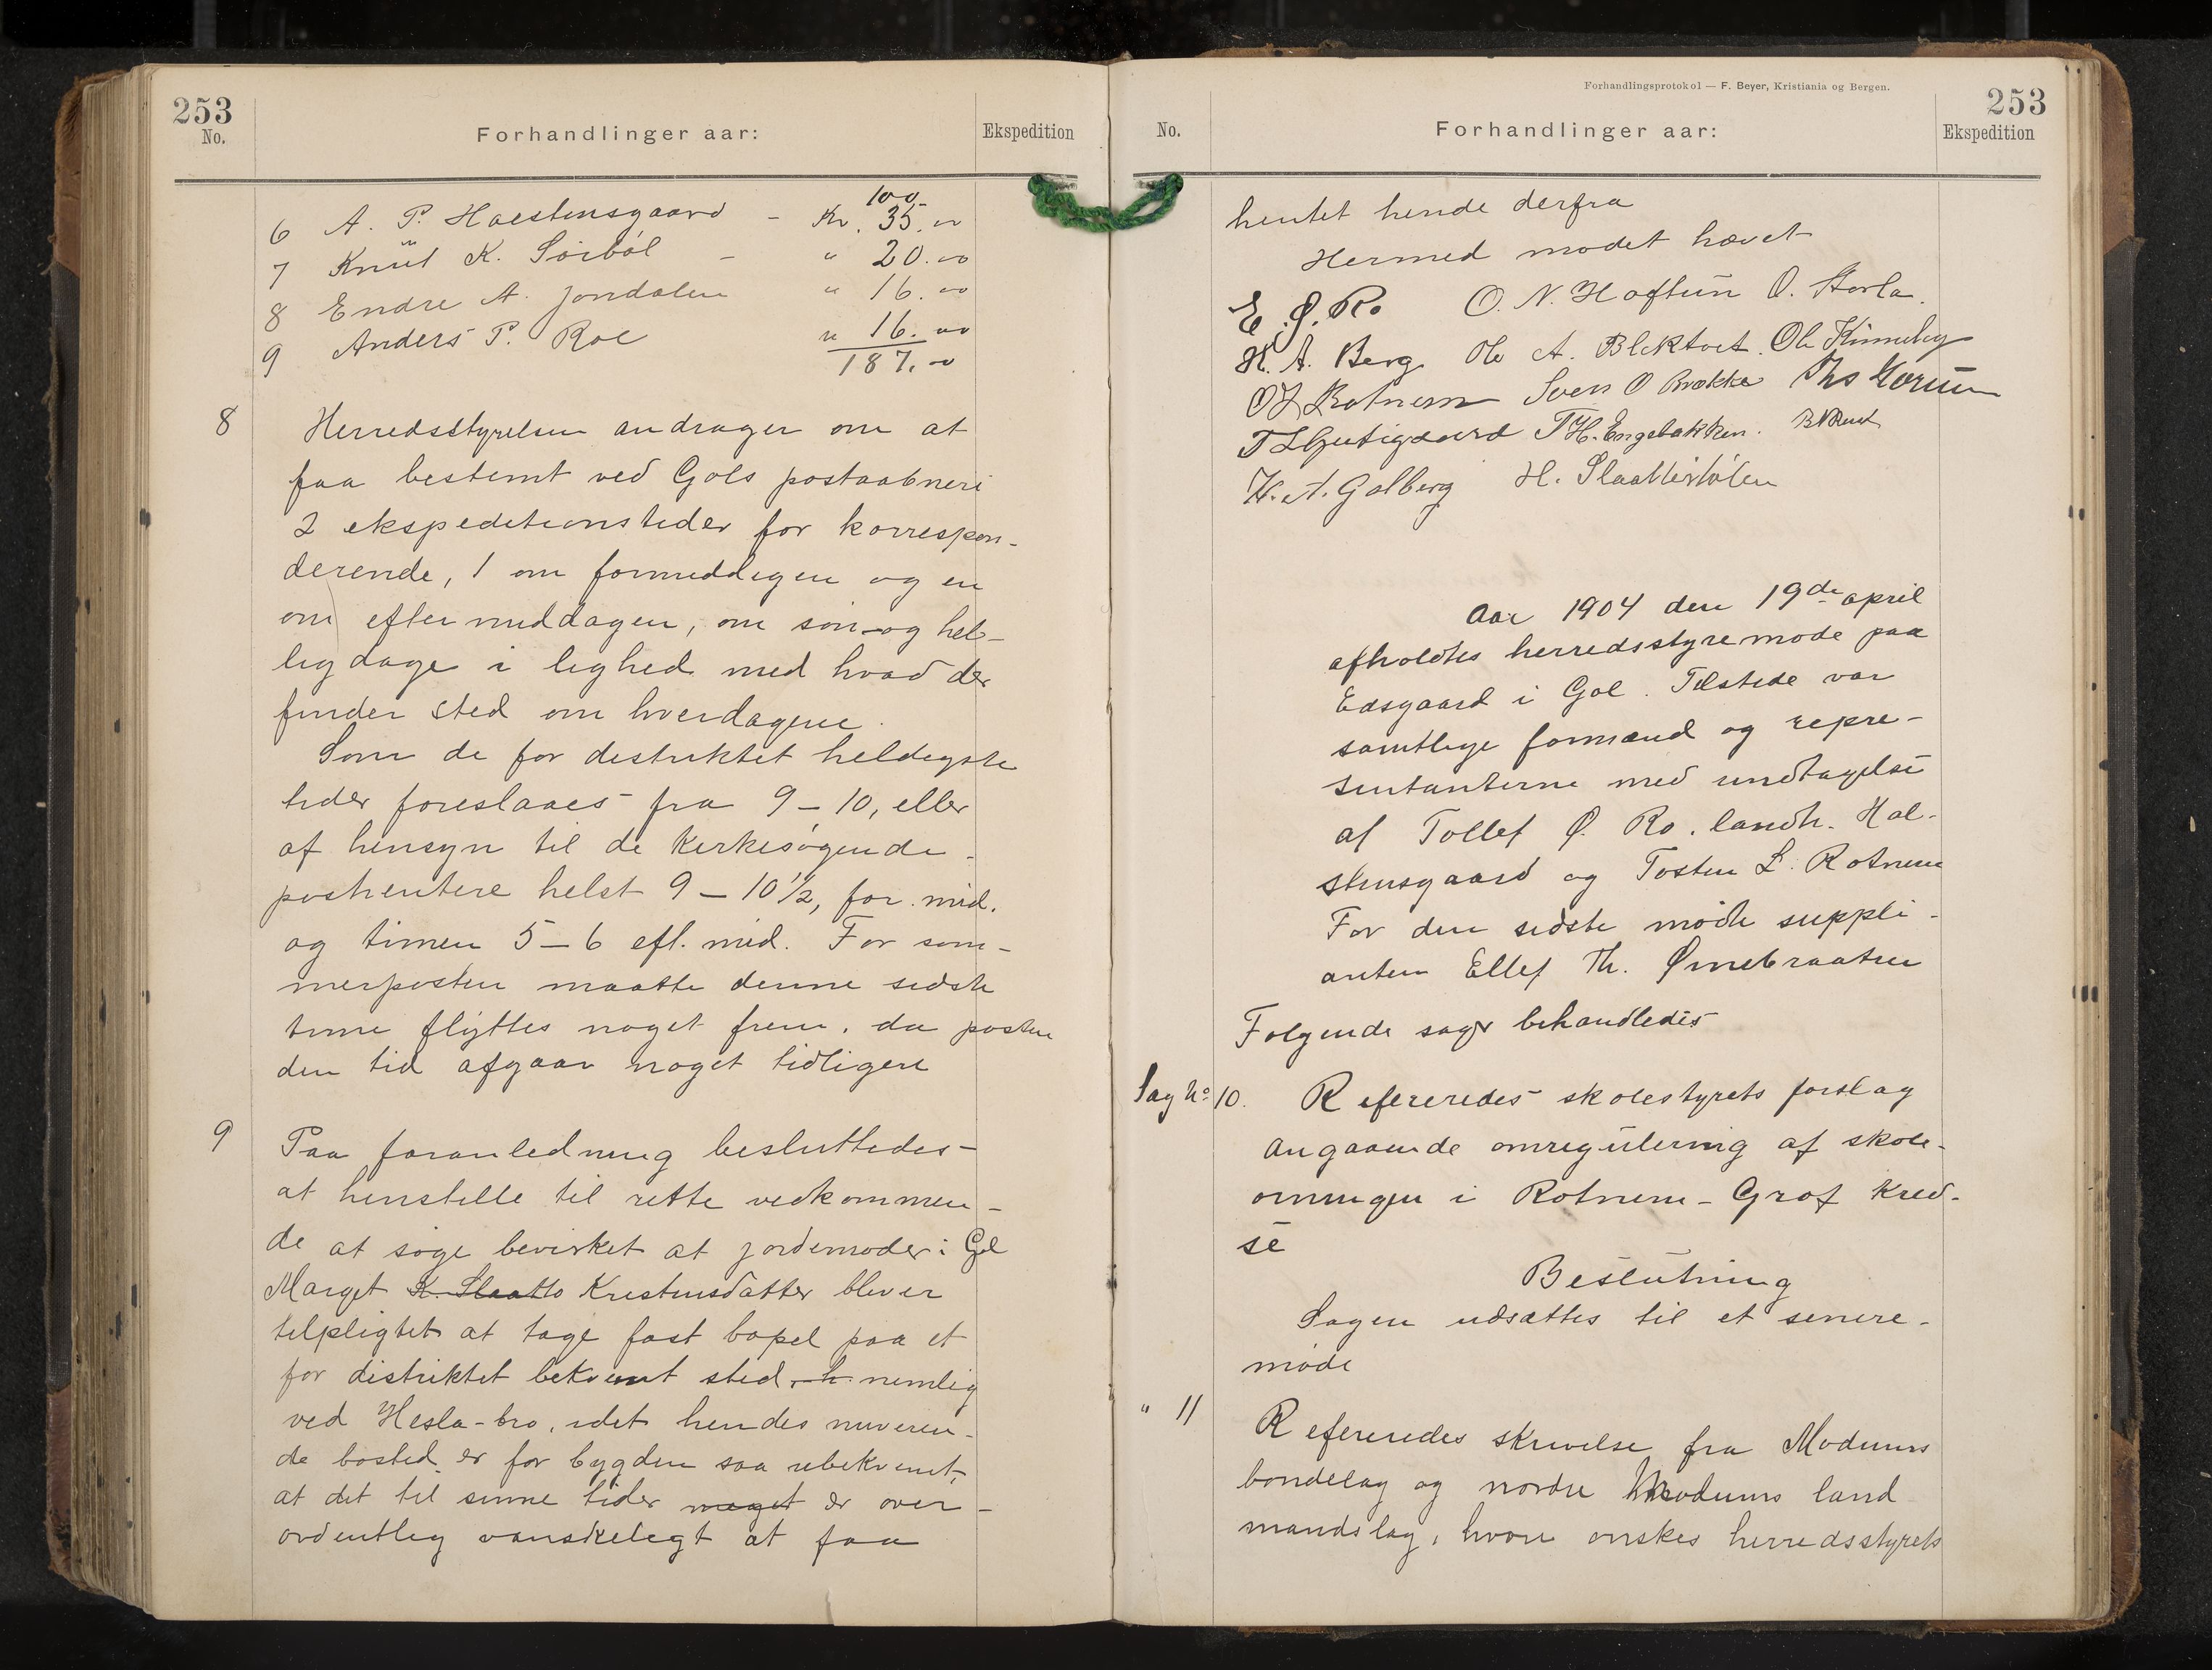 253
No.
Forhandlinger aar:
Ekspedition
100.-
6 A. P. Haestensgaard - Kr. 35.00
7 Knut K. Sørbøl - " 20.00
8 Endre A. Jondalen " 16.00
9 Anders P. Roe " 16.00
187.00
8 Herredsstyrelsen andrager om at
faa bestemt ved Gols postaabneri
2 ekspeditionstider for korrespon-
derende, 1 om formiddagen og en
om eftermiddagen, om søn- og hel-
ligdage i lighed med hvad der
finder sted om hverdagene.
Som de for distriktet heldigste
tider foreslaaes fra 9-10, eller
af hensyn til de kirkesøgende
posthentere helst 9-10½, for. mid.
og timen 5-6 eft. mid. For som-
merposten maatte denne sidste
time flyttes noget frem, da posten
den tid afgaar noget tidligere
9 Paa foranledning besluttedes
at henstille til rette vedkommen-
de at søge bevirket at jordemoder i Gol
Marget K. Slaatto Kristensdatter bliver
tilpligtet at tage fast bopel paa et
for distriktet bekvemt sted, h nemlig
ved Hesla-bro, idet hendes nuveren-
de bosted er for bygden saa ubekvemt,
at det til sinne tider meget er over-
ordentlig vanskeligt at faa
Forhandlingsprotokol — F. Beyer, Kristiania og Bergen.
253
No.
Forhandlinger aar:
Ekspedition
hentet hende derfra
Hermed mødet hævet
E. Ø. Ro O. N. Hoftun O. Storla.
H. A. Berg Ole A. Blektvet. Ole Kinneberg
O J Rotnem Sven O Brøkke Ths Gorum
T L Huftigaard T H. Engebakken.
K. A. Golberg H. Slaattestølen
Aar 1904 den 19de april
afholdtes herredsstyremøde paa
Eidsgaard i Gol. Tilstede var
samtlige formænd og repre-
sentanterne med undtagelse
af Tollef Ø. Ro, landh. Hal-
stensgaard og Tosten L. Rotnem
For den sidste mødte suppli-
anten Ellef Th. Ørnebraaten
Følgende sager behandledes
Sag No 10. Refereredes skolestyrets forslag
angaaende omregulering af skole-
ormingen i Rotnem-Grøf kred-
se
Beslutning
Sagen udsættes til et senere
møde
" 11 Refereredes skrivelse fra Modums
bondelag og nordre Modums land
mandslag, hvori ønskes herredsstyrets